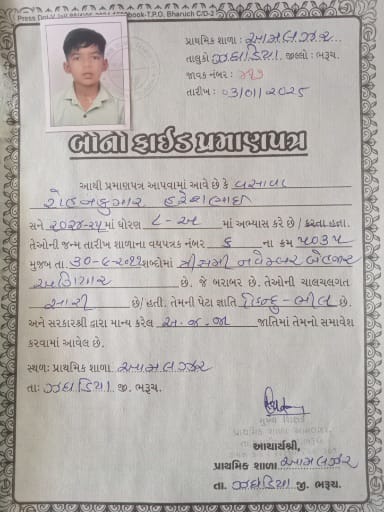 પ્રાથમિક શાળા : આમલઝર
તાલુકો ઝઘડિયા જીલ્લો : ભરૂચ.
જાવક નંબર :
તારીખ : 03/01/2025
બોનોફાઈડ પ્રમાણપત્ર
આથી પ્રમાણપત્ર આપવામાં આવે છે કે વસાવા
રોહનકુમાર હરેશભાઈ
સને ૨૦૨૪-૨૫ માં ધોરણ ૮-અ માં અભ્યાસ કરે છે / કરતા હતા.
તેઓની જન્મ તારીખ શાળાના વયપત્રક નંબર ૬ ના ક્રમ ૫૦૩૫
મુજબ તા. શબ્દોમાં ત્રીસમી નવેમ્બર બેહજાર
અગિયાર છે. જે બરાબર છે. તેઓની ચાલચલગત
સારી છે/ હતી. તેમની પેટા જ્ઞાતિ હિન્દુ-ભીલ છે.
અને સરકારશ્રી દ્વારા માન્ય કરેલ અ.જ.જા જાતિમાં તેમનો સમાવેશ
કરવામાં આવેલ છે.
સ્થળ: પ્રાથમિક શાળા આમલઝર
તા: ઝઘડિયા જી. ભરૂચ.
આચાર્યશ્રી,
પ્રાથમિક શાળા આમલઝર
તા. ઝઘડિયા જી. ભરૂચ.